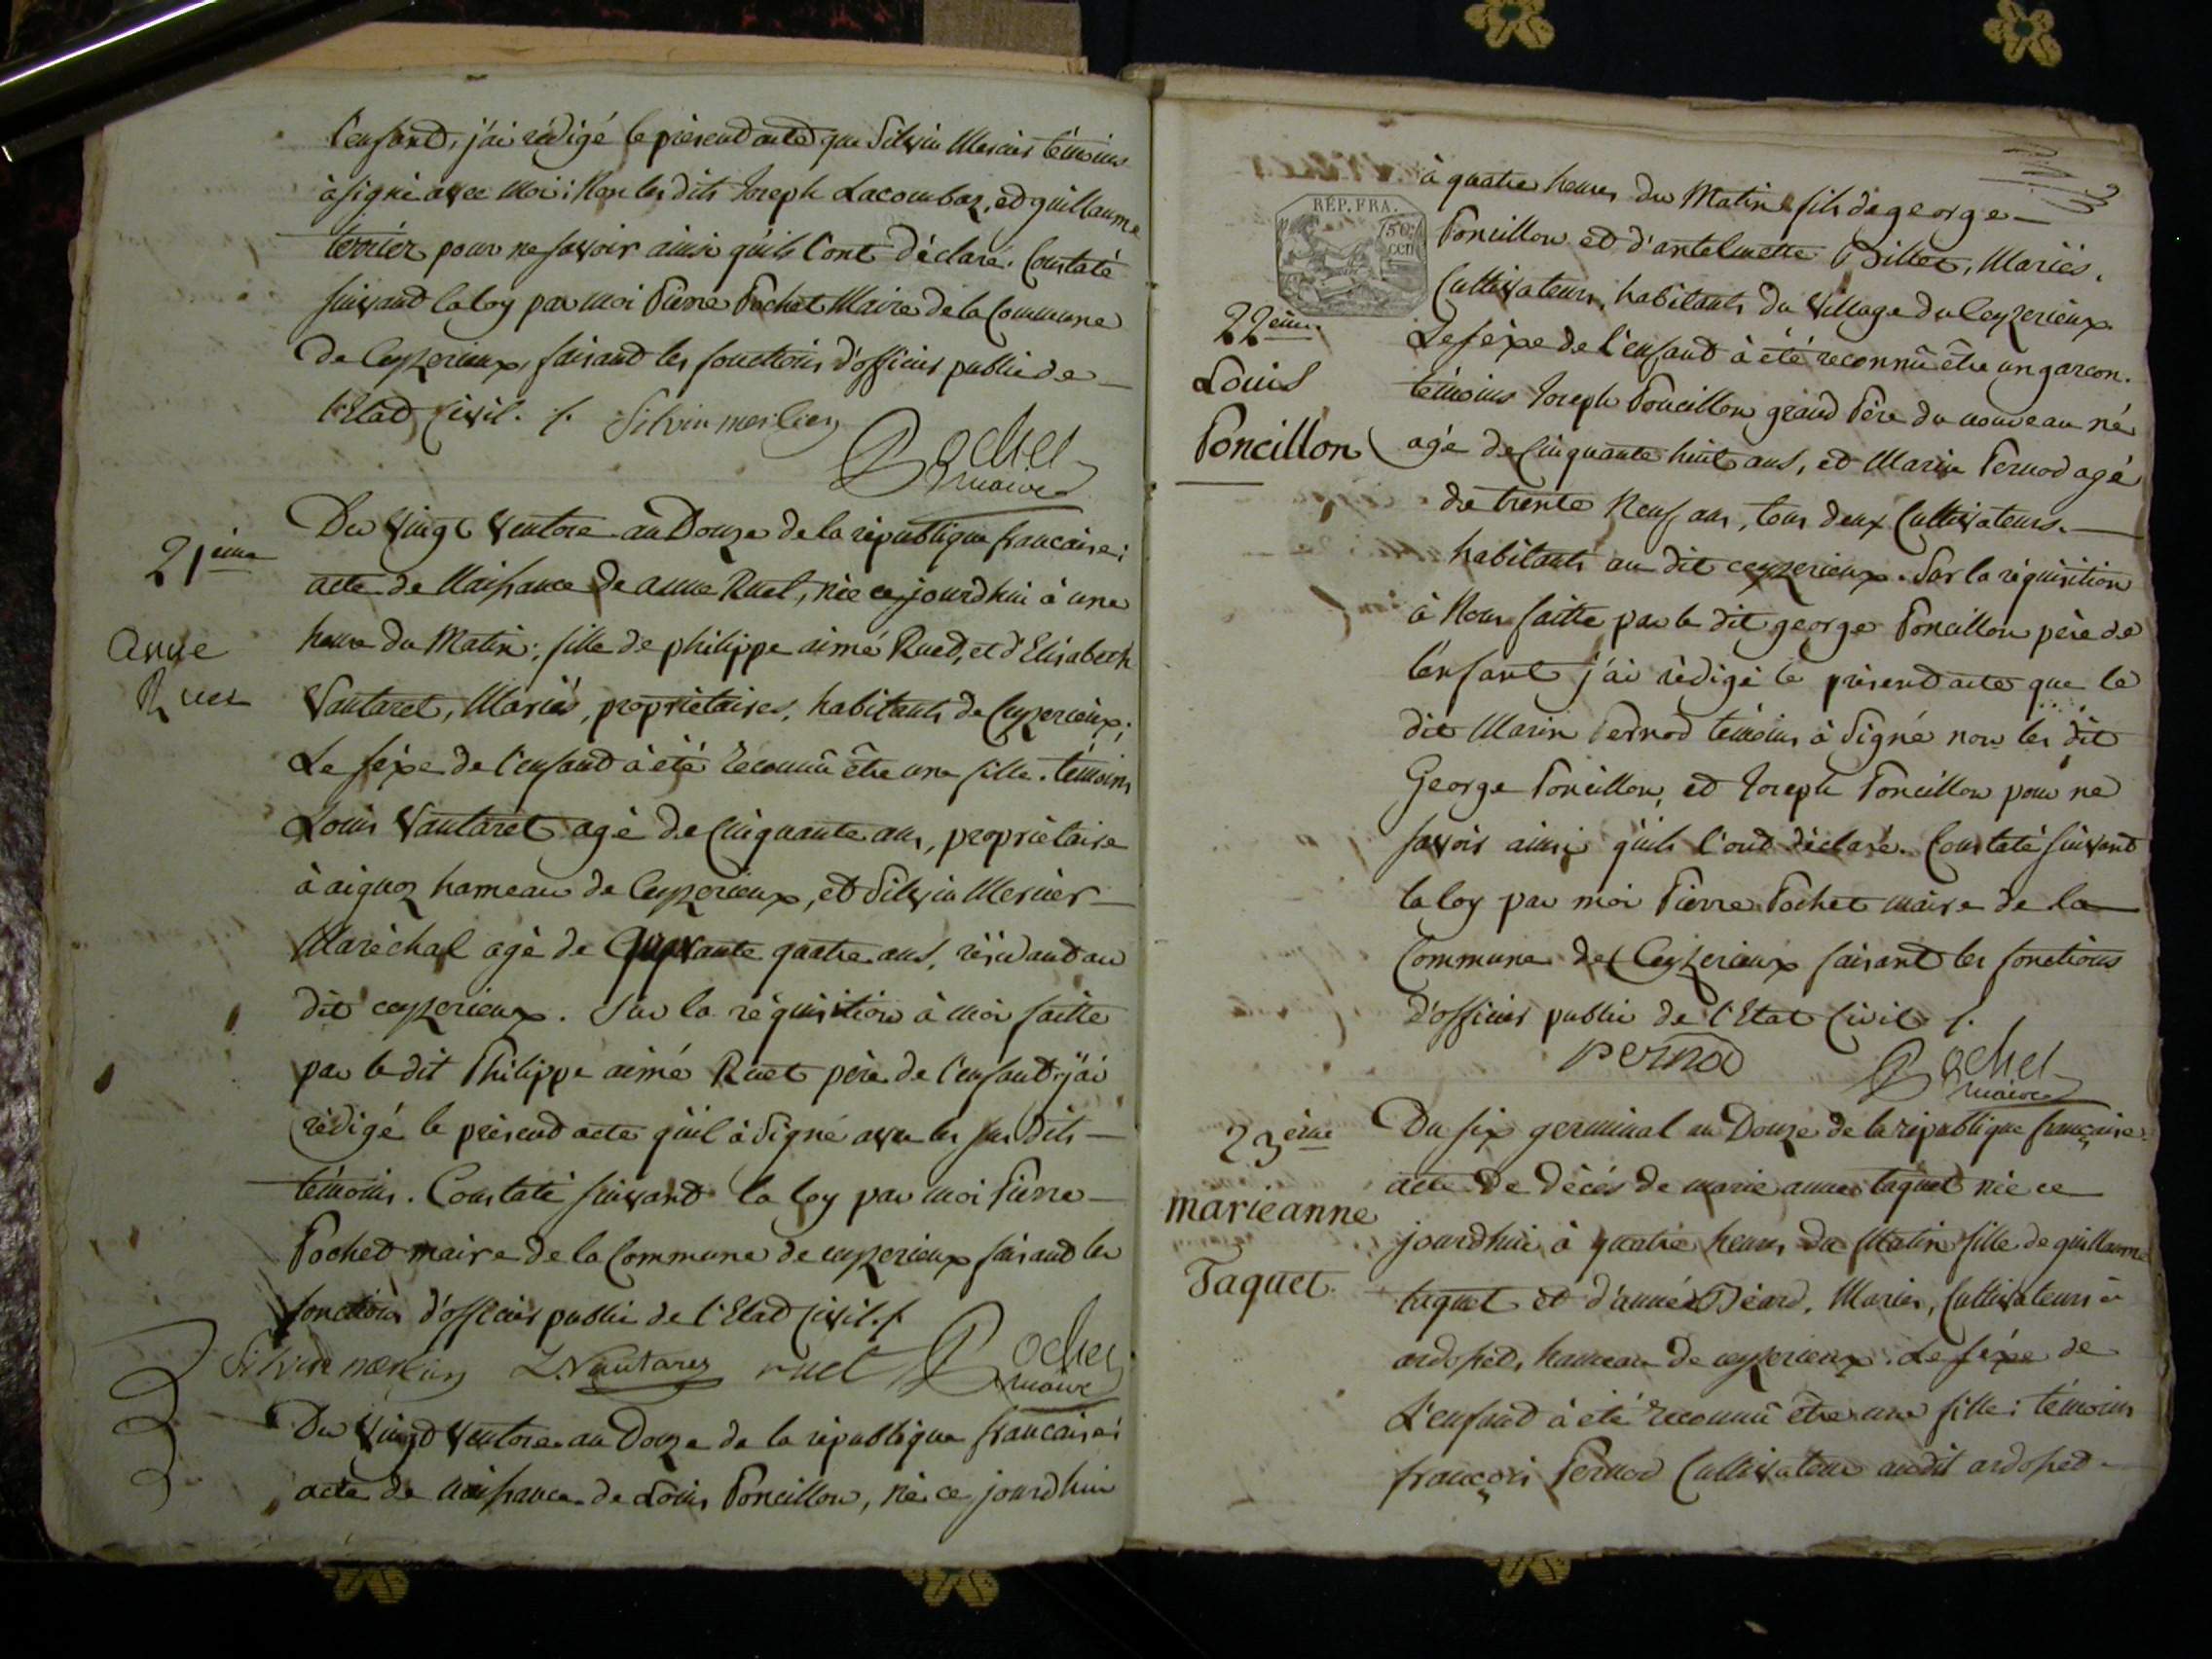 l'enfant, j'ai rédigé le présent acte que Silvin Mercier témoins
à signé avec moi; Non les dits Joseph Lacombaz, et guillaume
terrier pour ne savoir ainsi qu'ils l'ont déclaré. Constaté
suivant la loy par moi Pierre Pochet Maire de la Commune
de Ceyzerieux, faisant les fonctions d'officier public de
l'Etat Civil. /. Silvin
Pochet
maire
21ème
anne
Ruet
Du vingt Ventose an Douze de la république francaise;
acte de Naissance de anne Ruet, née ce jourdhui à une
heure du Matin; fille de philippe aimé Ruet, et d'Elisabeth
Vautaret, Mariés, propriétaires, habitants de Ceyzerieux;
Le séxe de l'enfant à été reconnû être une fille. témoins
Louis Vautaret agé de Cinquante ans, propriétaise
à aignoz hameau de Ceyzerieux, et Silvin Mercier
Maréchal agé de quarante quatre ans, résidant au
dit ceyzerieux. Sur la réquisition à moi faitte
par le dit Philippe aimé Ruet père de l'enfant j'ai
rédigé le présent acte qu'il à Signé avec les sus dits
témoins. Constaté suivant la loy par moi Pierre
Pochet maire de la Commune de ceyzerieux faisant les
fonctions d'officier public de l'Etat Civil. /.
Silvin L. Vautaret ruet Pochet
maire
Du Vingt Ventose an Douze de la république francaise;
acte de naissance de Louis Poncillon, né ce jourdhui
RÉP. FRA.
à quatre heures du Matin fils de george
Poncillon et d'antelmette Billet, Mariés,
Cultivateurs, habitants du Village du Ceyzerieux.
22ème
Louis
Poncillon
Le séxe de l'enfant à été reconnû être un garcon.
témoins Joseph Poncillon grand Père du nouveau né
agé de Cinquante huit ans, et Marin Pernod agé
de trente Neuf ans, tous deux Cultivateurs.
habitants au dit ceyzerieux. Sur la réquisition
à Nous faitte par le dit george Poncillon père de
l'enfant j'ai rédigé le présent acte que le
dit Marin Pernod témoins à Signé non les dit
George Poncillon, et Joseph Poncillon pour ne
savoir ainsi qu'ils l'ont déclaré. Constaté suivant
la loy par moi Pierre Pochet maire de la
Commune de Ceyzerieux faisant les fonctions
d'officier public de l'Etat Civil /.
Pernod Pochet
maire
23ème
marieanne
Taquet
Du six germinal an Douze de la république française.
acte de décès de marie anne taquet née ce
jourdhui à quatre heures du Matin fille de guillaume
taquet et d'anne Béard, Mariés, Cultivateurs à
ardosset, hameau de ceyzerieux. Le séxe de
L'enfant à été reconnû être une fille; témoins
françois Pernod Cultivateur audit ardosset